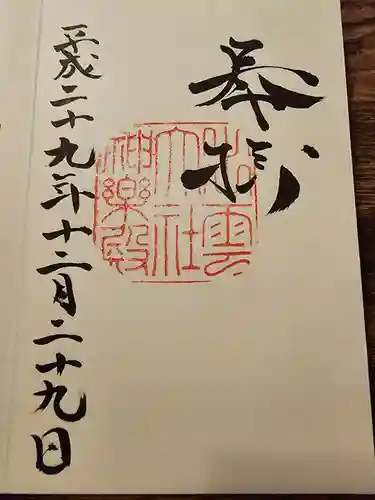 奉拝
出雲
大社
神楽殿
平成二十九年十二月二十九日